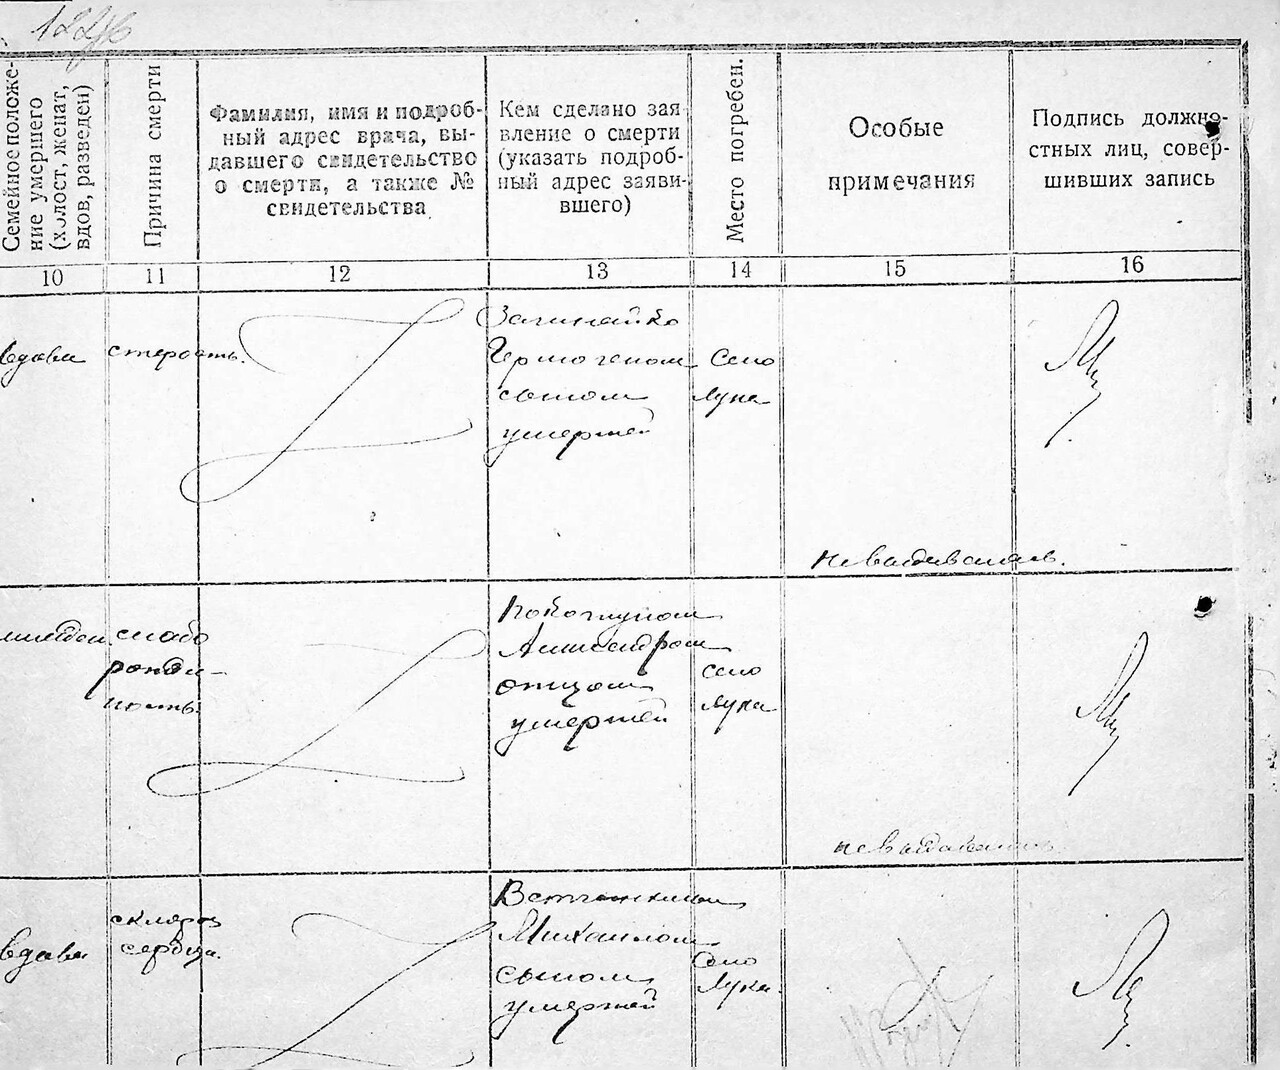 Семейное положе-
ние умершего
(холост, женат,
вдов, разведен)
Причина смерти
Фамилия, имя и подроб-
ный адрес врача, вы-
давшего свидетельство
о смерти, а также №
свидетельства
Кем сделано зая-
вление о смерти
(указать подроб-
ный адрес заяви-
вшего)
Место погребен.
Особые
примечания
Подпись должно-
стных лиц, совер-
шивших запись
10
11
12
13
14
15
16
вдова
старость.
Гермогеном
сыном
умершей
Село
Лука
слабо
рожден-
ность.
Александром
отцом
умершей
Село
Лука
вдова
склероз
сердца.
Михаилом
сыном
умершей
Село
Лука.